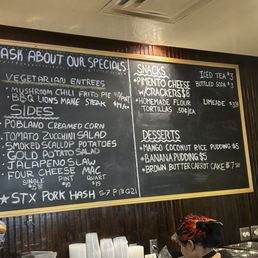 ASK ABOUT OUR SPECIALS
VEGETARIAN ENTREES
• MUSHROOM CHILI FRITO PIE
• BBQ LIONS MANE STEAK
SIDES
• POBLANO CREAMED CORN
• TOMATO ZUCCHINI SALAD
• SMOKED SCALLOP POTATOES
• GOLD POTATO SALAD
• JALAPENO SLAW
• FOUR CHEESE MAC
SINGLE PINT QUART
★ STX PORK HASH
SNACKS
• PIMENTO CHEESE
W/CRACKERS $8
• HOMEMADE FLOUR
TORTILLAS .50¢ EA
ICED TEA $3
BOTTLED SODA $3
LIMEADE
DESSERTS
• MANGO COCONUT RICE PUDDING $5
• BANANA PUDDING $5
• BROWN BUTTER CARROT CAKE $7.50